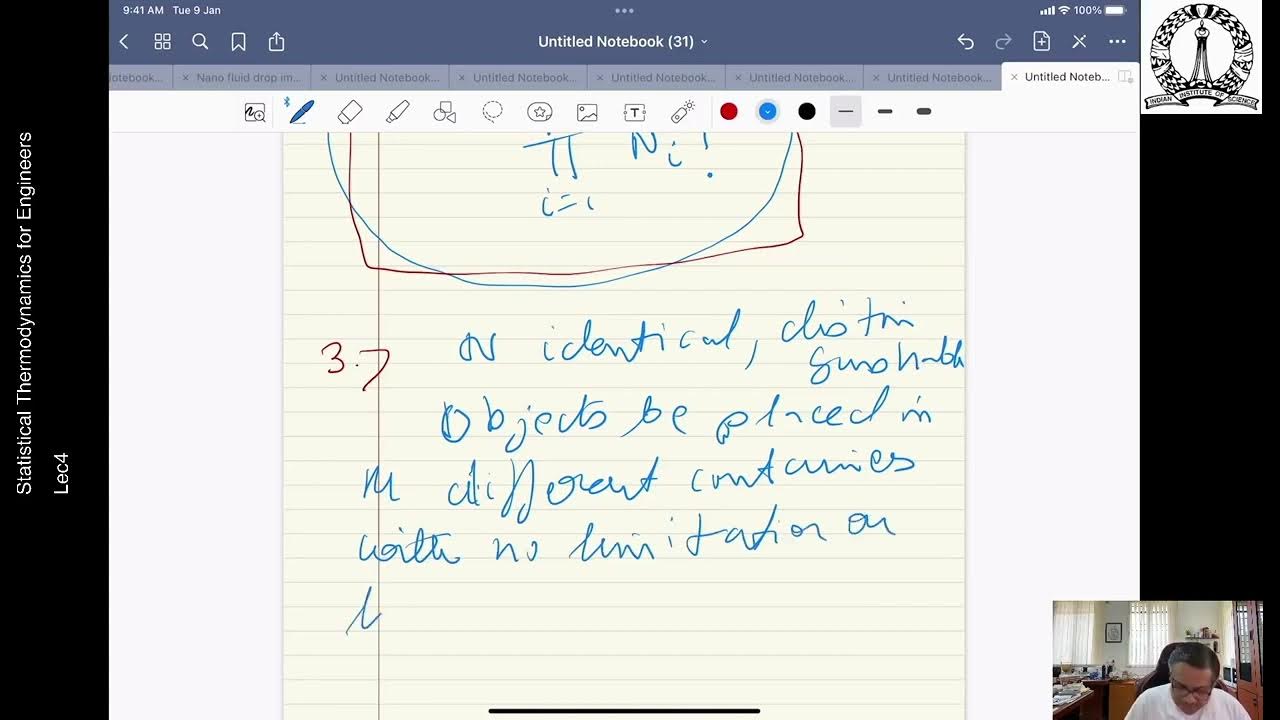 9:41 AM Tue 9 Jan
100%
Untitled Notebook (31)
otebook...
Nano fluid drop im...
Untitled Notebook...
Untitled Notebook...
Untitled Notebook...
Untitled Notebook...
Untitled Notebook...
Untitled Noteb...
INDIAN INSTITUTE OF SCIENCE
Statistical Thermodynamics for Engineers
Lec4
π Ni!
i=1
3.7 N identical, distin
guishable
Objects be placed in
M different containies
with no limitation on